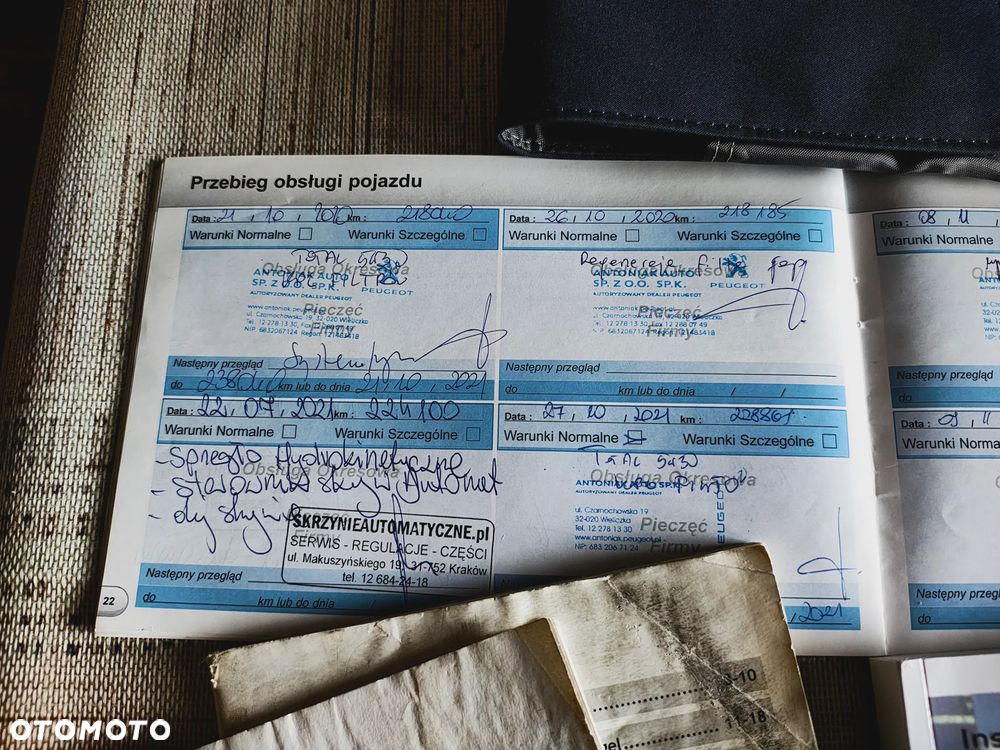 Przebieg obsługi pojazdu
Data : 21 , 10 , 2020 km : 218010
Warunki Normalne Warunki Szczególne
Total 5W30
Obsługa Okresowa
ANTONIAK AUTO
SP. Z O.O. SP.K.
AUTORYZOWANY DEALER PEUGEOT
PEUGEOT
www.antoniak.peugeot.pl
ul. Czarnochowska 19, 32-020 Wieliczka
Tel. 12 278 13 30, Fax 12 288 07 49
NIP: 6832067124 Regon: 121483418
Pieczęć
Firmy
Następny przegląd
do km lub do dnia 21 10 , 2021
Data : 26 , 10 , 2020 km : 218185
Warunki Normalne Warunki Szczególne
Obsługa Okresowa
ANTONIAK AUTO
SP. Z O.O. SP.K.
AUTORYZOWANY DEALER PEUGEOT
PEUGEOT
www.antoniak.peugeot.pl
ul. Czarnochowska 19, 32-020 Wieliczka
Tel. 12 278 13 30, Fax 12 288 07 49
NIP: 6832067124 Regon: 121483418
Pieczęć
Firmy
Następny przegląd
do km lub do dnia / /
Data : 22 , 07 , 2021 km : 224100
Warunki Normalne Warunki Szczególne
- Sprzęgło Hydrokinetyczne
Obsługa Okresowa
- sterownik skrzyni Automat
- olej skrzynia
SKRZYNIEAUTOMATYCZNE.pl
SERWIS - REGULACJE - CZĘŚCI
ul. Makuszyńskiego 19, 31-752 Kraków
tel. 12 684-24-18
Następny przegląd
do km lub do dnia /
Data : 27 , 10 , 2021 km : 228861
Warunki Normalne Warunki Szczególne
Total 5W30
Obsługa Okresowa
ANTONIAK AUTO SP.K.
AUTORYZOWANY DEALER PEUGEOT
PEUGEOT
ul. Czarnochowska 19
32-020 Wieliczka
Tel. 12 278 13 30
www.antoniak.peugeot.pl
NIP: 683 206 71 24
Pieczęć
Firmy
, 2021
22
Data : 08 , 11
Warunki Normalne
Następny przegląd
do
Data : 09 , 11
Warunki Norma
Następny przeg
do
3-10
11-18
Ins
OTOMOTO